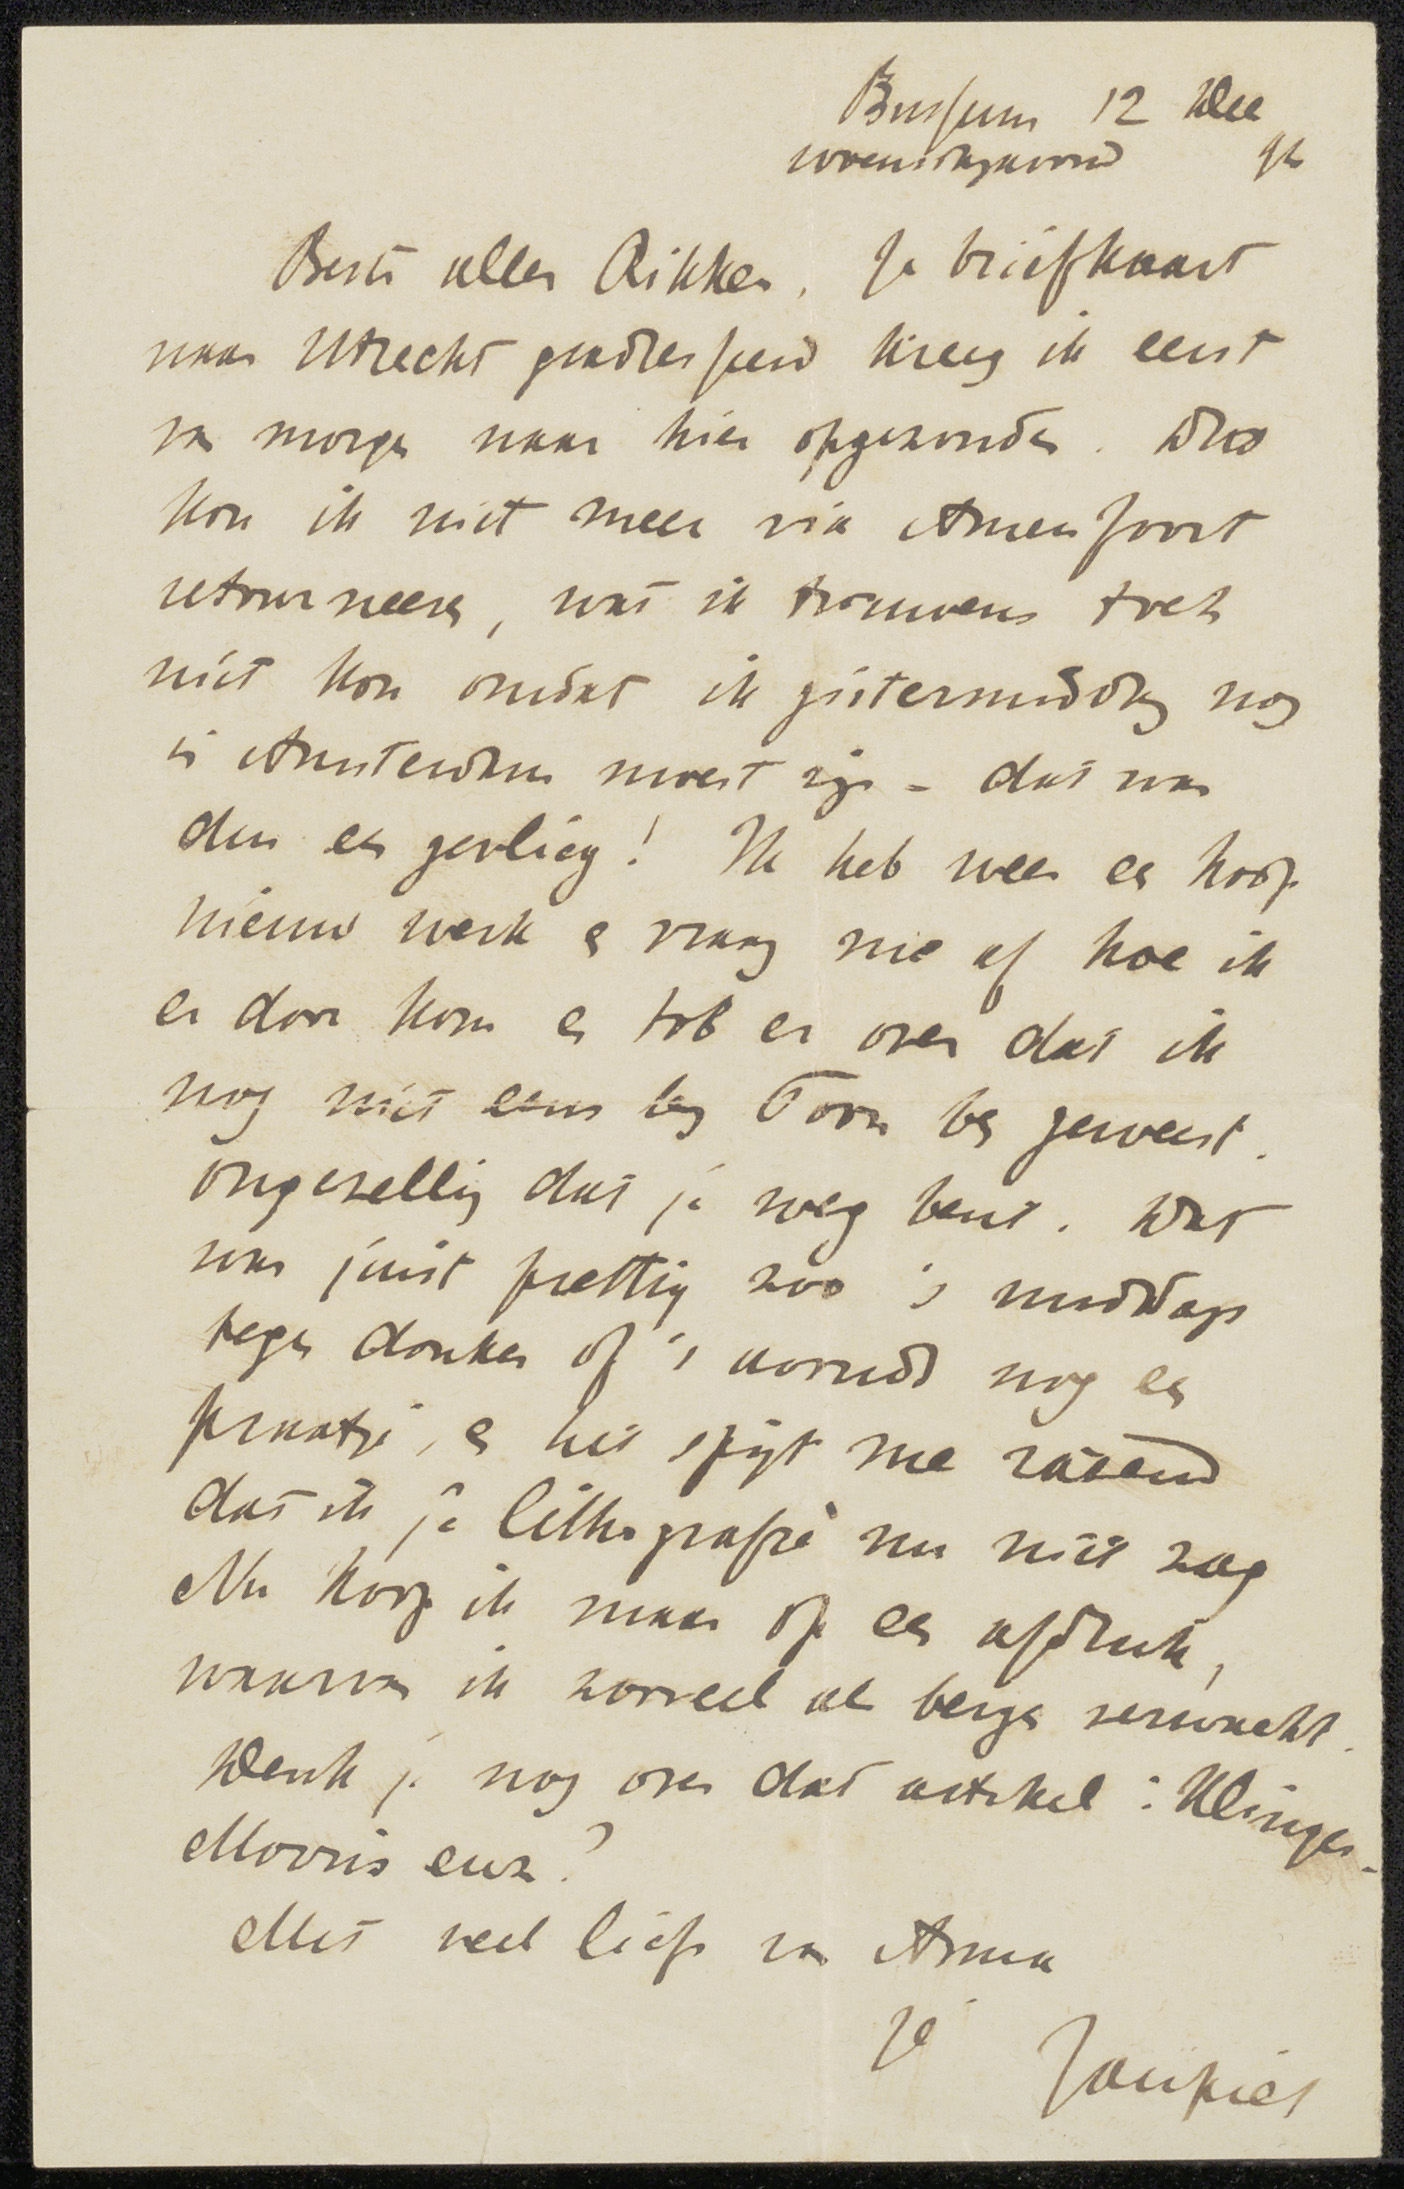 Bussum 12 Dec
woensdagavond 94
Beste aller Rikken, Je briefkaart
naar Utrecht geadresseerd kreeg ik eerst
van morgen naar hier opgezonden. Dus
kon ik niet meer via Amersfoort
retourneeren, wat ik trouwens toch
niet kon omdat ik gistermiddag nog
in Amsterdam moest zijn – dat was
dus een gevlieg! Ik heb weer een hoop
nieuw werk en vraag me af hoe ik
er door kom en tob er over dat ik
nog niet eens bij Toon ben geweest.
Ongezellig dat je weg bent. Dat
was juist prettig zoo 's middags
tegen donker of 's avonds nog een
praatje, en het spijt me razend
dat ik je lithografie nu niet zag
Nu hoop ik maar op een afdruk,
waarvan ik zooveel als bergen verwacht.
Denk je nog over dat artikel: Klinger-
Morris enz?
Met veel liefs van Anna
Je Janpiet